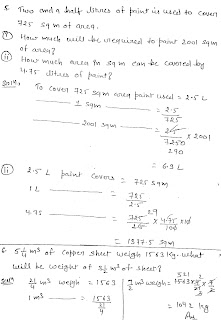 5. Two and a half litres of paint is used to cover
725 sq m of area.
(i) How much will be required to paint 2001 sqm
of area?
(ii) How much area in sq m can be covered by
4.75 litres of paint?
Soln. To cover 725 sqm area paint used = 2.5 L
1 sqm = 2.5
725
2001 sqm = 2.5 × 2001
7250
290
= 6.9 L
(ii) 2.5 L paint covers = 725 sqm
1 L = 725
2.5
4.75 = 725 29 × 4.75 × 10
25 100
= 1377.5 sqm
6. 5 1/4 m³ of copper sheet weigh 1563 kg. what
will be weight of 3 1/2 m³ of sheet?
Soln 21/4 m³ weigh = 1563
1 m³ = 1563
21/4
7/2 m³ weigh = 1563 × 4/21 × 7/2
= 1042 kg
Ans